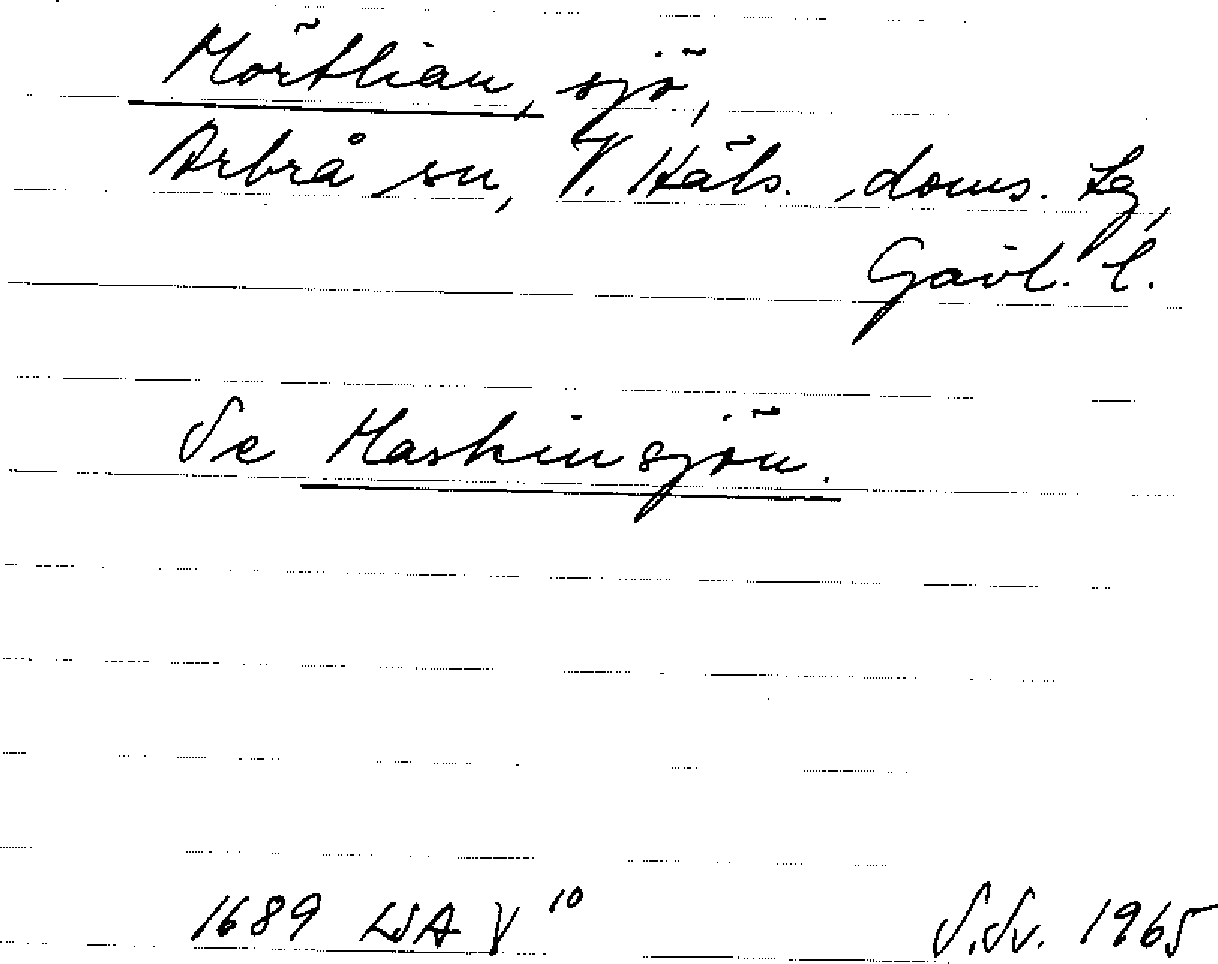 Mörtlian, sjö,
Arbrå sn, V. Häls. doms. lg,
Gävl. l.
Se Maskinsjön.
1689 LSA V 10
S.Sv. 1965